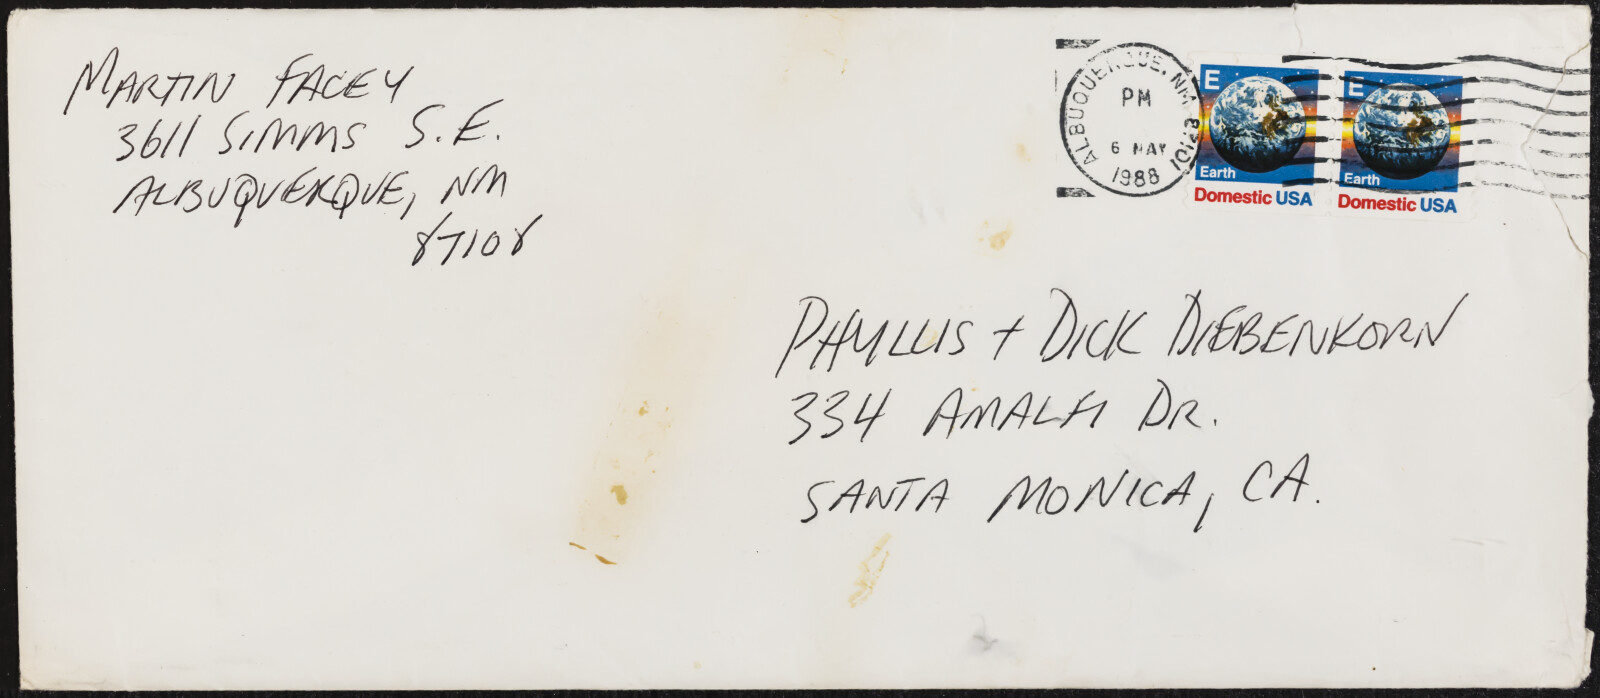 MARTIN FACEY
3611 SIMMS S.E.
ALBUQUERQUE, NM
87108
ALBUQUERQUE, NM 87101
PM
6 MAY
1988
E
Earth
Domestic USA
E
Earth
Domestic USA
PHYLLIS + DICK DIEBENKORN
334 AMALFI DR.
SANTA MONICA, CA.